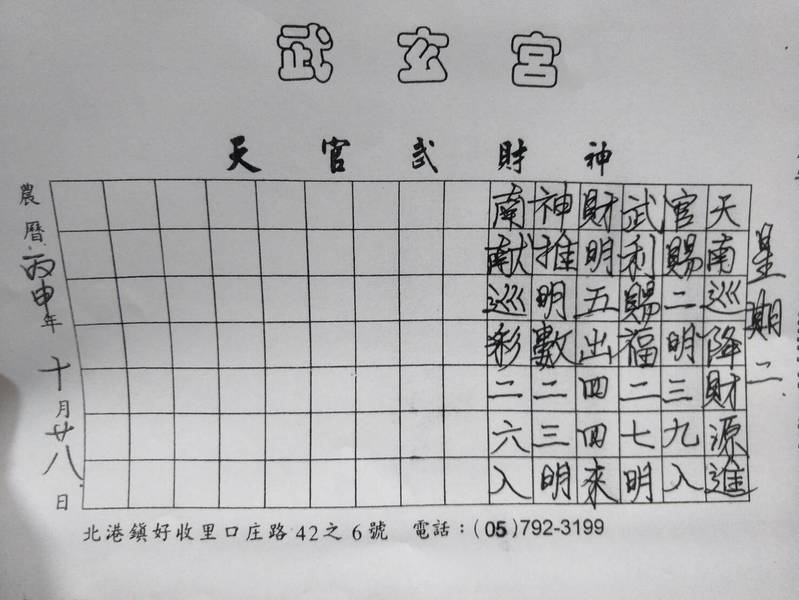 武玄宮
天官武財神
星期二
天南巡降財源進
官賜二明三九入
武利賜福二七明
財明五出四四來
神推明數二三明
南献巡彩二六入
農曆丙申年十月廿八日
北港鎮好收里口庄路42之6號 電話：(05)792-3199